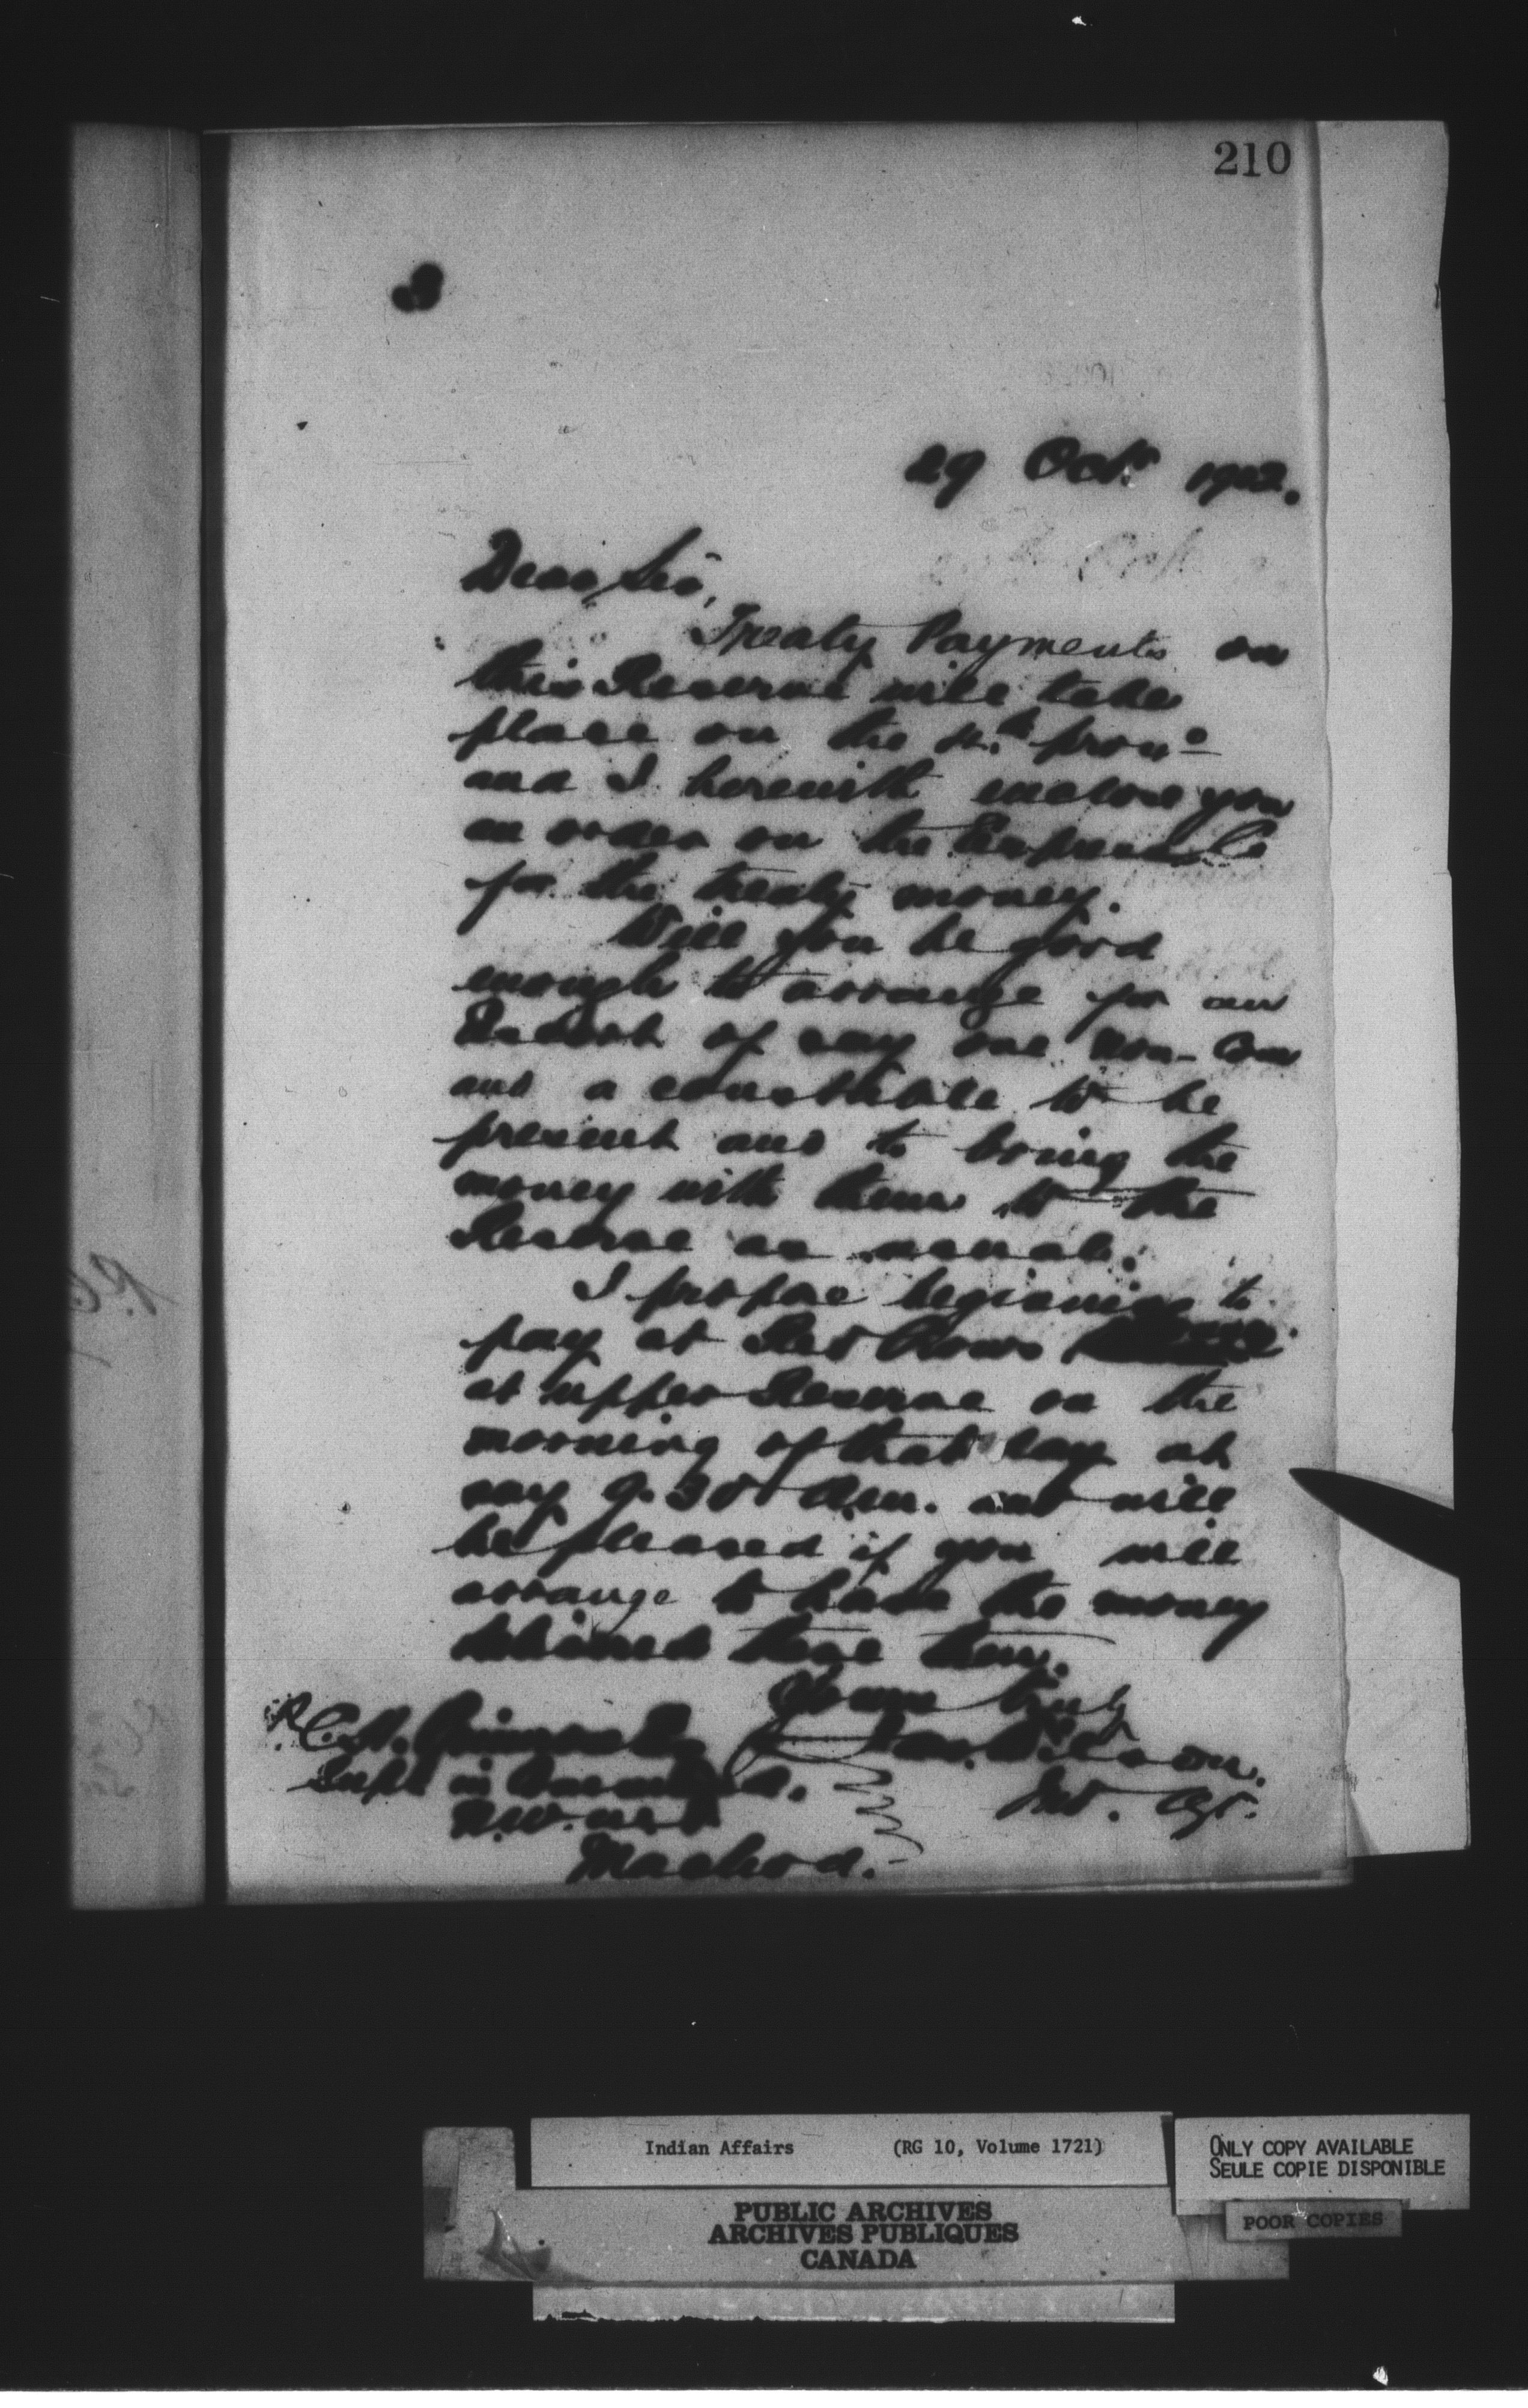 210
29 Oct. 1902.
Dear Sir,
Treaty Payments on
this Reserve will take
place on the prox.o
and I herewith enclose you
an order on the Express Co
for the treaty money.
Will you be good
enough to arrange for an
Escort of say one Non-Com
and a constable to be
present and to bring the
money with them to the
Reserve as usual.
I propose beginning to
pay at Red Crows
at upper Reserve on the
morning of that day at
say 9.30 a.m. and will
be pleased if you will
arrange to have the money
delivered there then.
Yours truly
Jas. Wilson.
Ind. Agt.
Supt in Command.
N.W.M.P
Macleod.
Indian Affairs (RG 10, Volume 1721)
ONLY COPY AVAILABLE
SEULE COPIE DISPONIBLE
POOR COPIES
PUBLIC ARCHIVES
ARCHIVES PUBLIQUES
CANADA